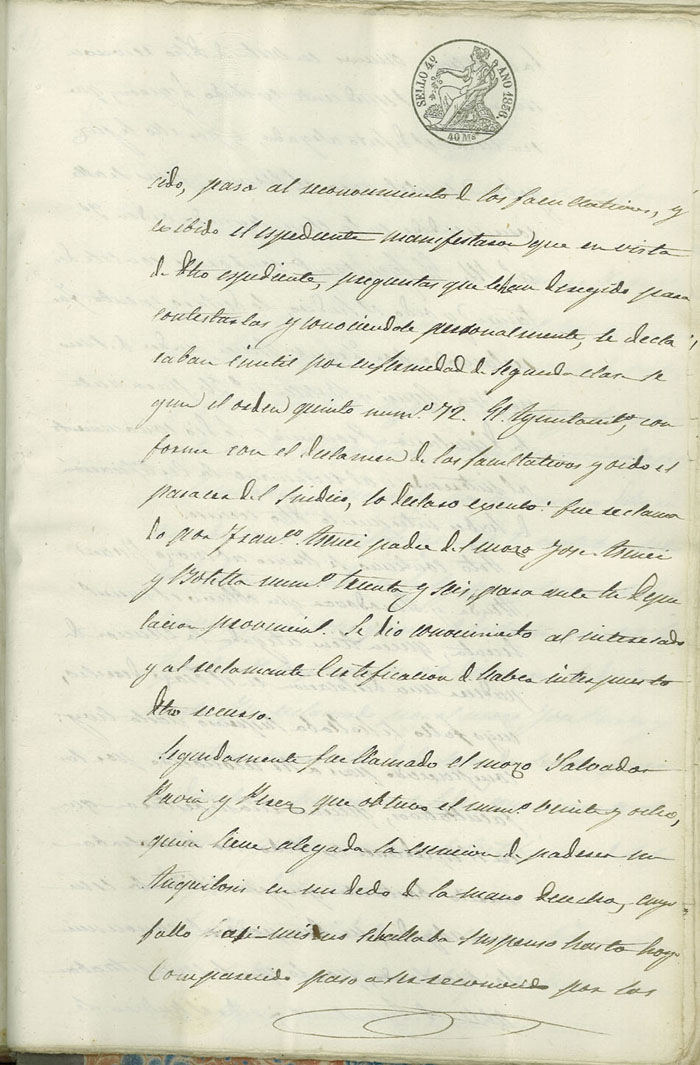 SELLO 4º AÑO 1856.
40 Ms
cido, paso al reconocimiento de los facultativos, y
recibido el espediente manifestaron que en vista
de dho espediente, preguntas que le han dirigido para
contestarlas y conociendole personalmente, le decla
raban inutil por enfermedad de segunda clase se
gun el orden quinto num.º 72. El Ayuntamto, con
forme con el dictamen de los facultativos y oido el
parecer del Sindico, lo declaro esento: fue reclama
do por Franco. padre del mozo Jose
y Botella num.º treinta y seis, para ante la Dipu
tacion provincial. Se dio conocimiento al interesado
y al reclamante Certificacion de haber interpuesto
dho recurso.
Seguidamente fue llamado el mozo Salvador
Pavia y Perez que obtuvo el num.º veinte y ocho,
quien tiene alegada la esencion de padecer un
Anquilosis en un dedo de la mano derecha, cuyo
fallo asi-mismo se hallaba suspenso hasta hoy
Comparecido paso a ser reconocido por los